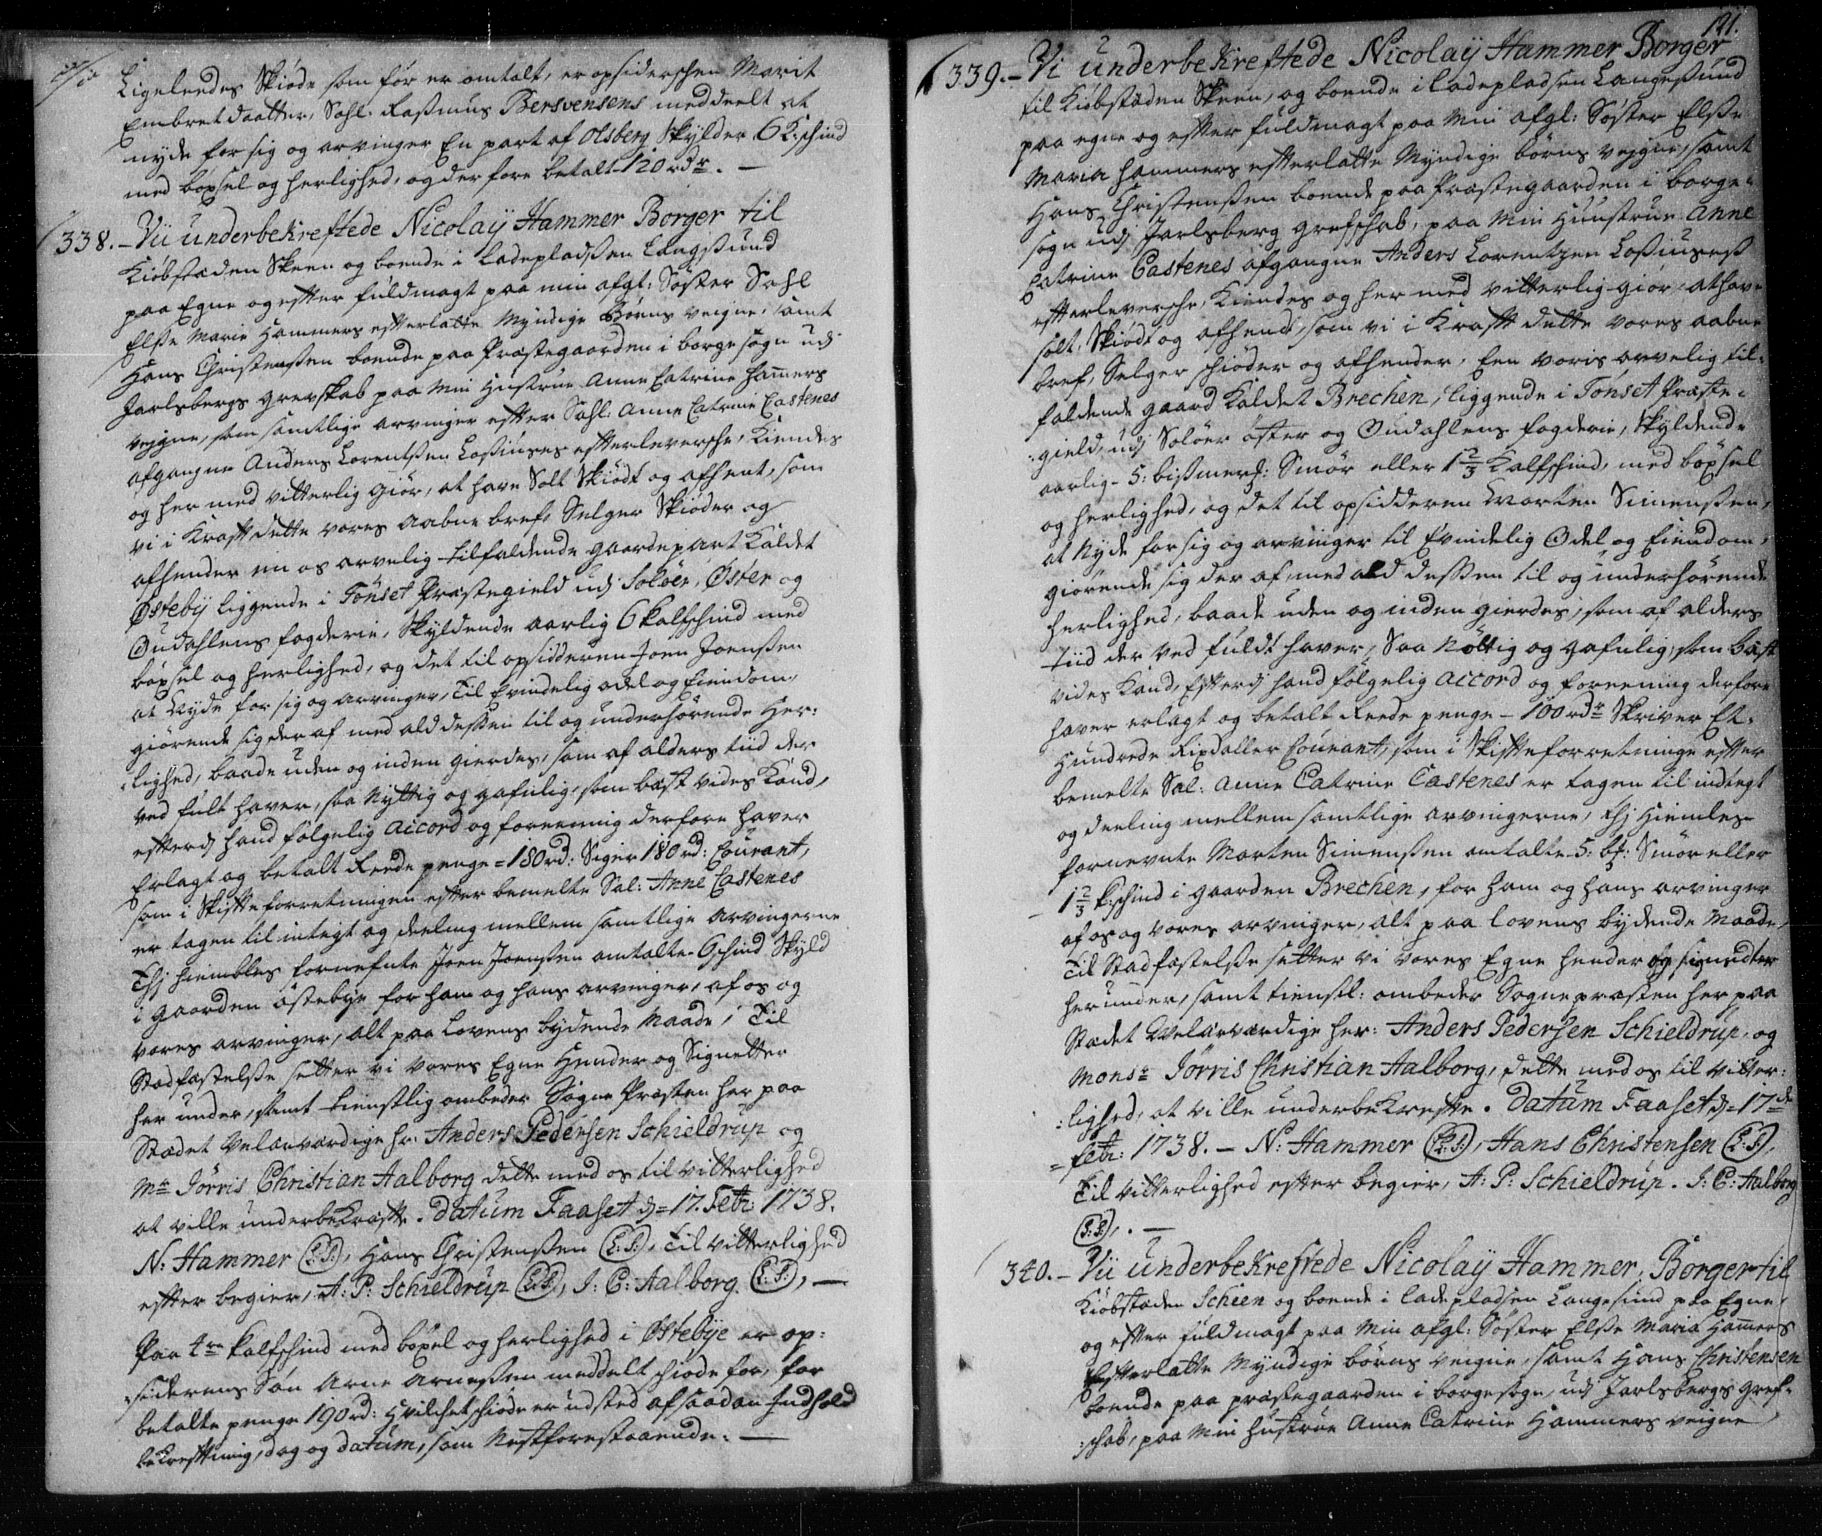 Ligeleedes Skiøde som før er omtalt, er opsiderschen Marit
Embretdaatter, Sahl. Rasmus Bersvensens meddeelt at
nyde for sig og arvinger En part af Olsberg Skylder 6 K:schind
med böxsel og herlighed, og derfore betalt 120 rdr. —
338. – Vii underbekreftede Nicolaÿ Hammer Borger til
Kiöbstæden Skeen og boende i Ladepladsen Langsund
paa Egne og efter fuldmagt paa min afgl: Søster Sahl
Elsse Marie Hammers efterlatte Myndige Börns veigne, samt
Hans Christenssen boende paa Præstegaarden i borge sogn udj
Jarlsbergs grevskab paa Min Hustrue Anne Catrine Hamers
veigne, som samtlige arvinger efter Sahl: Anne Catrine Castenes
afgangne Anders Lorentssen Lossiuses efterleversche, Kiendes
og her med vitterlig giör, at have Solt Skiödt og afhent, som
vi i Kraft dette vores aabne bref, Selger Skiöder og
afhender en os arvelig tilfaldende gaardepart Kaldet
Østebÿ liggende i Tönset Præstegield udj Solöer, Øster og
Oudahlens fogderie, Skyldende aarlig 6 kalfschind med
böxsel og herlighed, og det til opsidderen Joen Joenssen
at Nyde for sig og arvinger, til Evindelig odel og Eiendom,
giörende sig der af med ald dessen til og underhörende Her-
lighed, baade uden og inden gierdes, som af alders tiid der
ved fult haver, saa Nyttig og gafnlig, som bæst vides Kand,
efterdj hand fölgelig accord og foreening derfore haver
Erlagt og betalt Reede penge = 180 rd: Siger 180 rd: Courant,
som i Skifteforretningen efter bemelte Sal: Anne Castenes
er tagen til integt og deeling mellem samtlige arvingerne
Thj hiembles fornefnte Joen Joenssen omtalte 6 schind Skyld
i gaarden östebye for ham og hans arvinger, af os og
vores arvinger, alt paa Lovens bydende Maade, Til
Stadfæstelsse setter vi vores Egne Hender og Signetter
her under, samt tienstlig ombeder Sogne Præsten her paa
Stædet Velærværdige hr. Anders Pedersen Schieldrup og
Mr Jörris Christian Aalborg dette med os til vitterlighed
at ville underbekræfte. Datum Faaset d = 17. Febr: 1738.
N: Hammer (L:S:), Hans Christenssen (L:S:), Til vitterlighed
efter begier, A. P: Schieldrup (L:S:), J: C: Aalborg. (L:S:), —
Paa 4re kalfschind med böxel og herlighed i Østebÿe er op-
siderens Sön Arne Arnessen meddelt schiöde for, for
betalte penge 190 rd: hvilchet schiöde er udsted af saadan Indhold
bekreftning, dag og datum, som Nestforestaaende. —
121.
339. – Vi underbekreftede Nicolaÿ Hammer Borger
til Kiöbstæden Skeen, og boende i Ladepladsen Langessund
paa egne og efter fuldmagt paa Min afgl: Söster Elsse
Maria Hammers efterlatte Myndige börns veigne, samt
Hans Christenssen boende paa Præstegaarden i borge-
sogn udj Jarlsberg grefschab, paa Min Huustrue Anne
Catrine Castenes afgangne Anders Lorentzen Lossiuses
efterleversche, Kiendes og her med vitterlig giör, at have
solt, Skiödt og afhend, som vi i Kraft dette vores aabne
bref, Selger schiöder og afhender, Een voris arvelig til-
faldende gaard Kaldet Brechen, liggende i Tönset Præste-
gield, udj Solöer öster og Oudahlens fogderie, Skyldende
aarlig – 5: bissmer: Smör eller 1 2/3 Kalfschind, med böxsel
og herlighed, og det til opsidderen Morten Simenssen,
at Nyde for sig og arvinger til Evindelig Odel og Eiendom,
giörende sig der af med ald dessen til og underhörende
herlighed, baade uden og inden gierdes, som af alders
tiid der ved fuldt haver, Saa Nöttig og gafnlig, som best
vides kand, Efterdj hand fölgelig accord og foreening derfore
haver erlagt og betalt Reede penge – 100 rdr Skriver Et-
Hundrede Rixdaller Courant, som i Skifteforretninge efter
bemelte Sal: Anne Catrine Castenes er tagen til indtegt
og deeling mellem samtlige arvingerne, Thj Hiemles
fornevnte Morten Simenssen omtalte 5: b: Smör eller
1 2/3 K:schind i gaarden Brechen, for ham og hans arvinger
af os og vores arvinger, alt paa Lovens bydende Maade,
Til Stadfæstelsse setter vi vores Egne hender og signedter
herunder, samt tienstl: ombeder Sognepræsten her paa
Stædet Velærværdige her: Anders Pedersen Schieldrup, og
Monsr Jörris Christian Aalborg, dette med os til vitter-
lighed, at ville underbekrefte. Datum Faaset d = 17de
Febr: 1738. – N: Hammer (L:S:), Hans Christensen (L:S:),
Til vitterlighed efter begier, A: P: Schieldrup. J: C: Aalborg
(L:S:), . —
340. – Vii underbekreftede Nicolaÿ Hammer, Borger til
Kiöbstæden Scheen og boende i Ladepladsen Langesund paa Egne,
og efter fuldmagt paa Min afgl: Söster Elsse Maria Hamers
Efterlatte Myndige börns veigne, samt Hans Christensen
boende paa præstegaarden i borgesogn, udj Jarlsbergs gref-
schab, paa Min Hustrue Anne Catrine Hammers veigne,